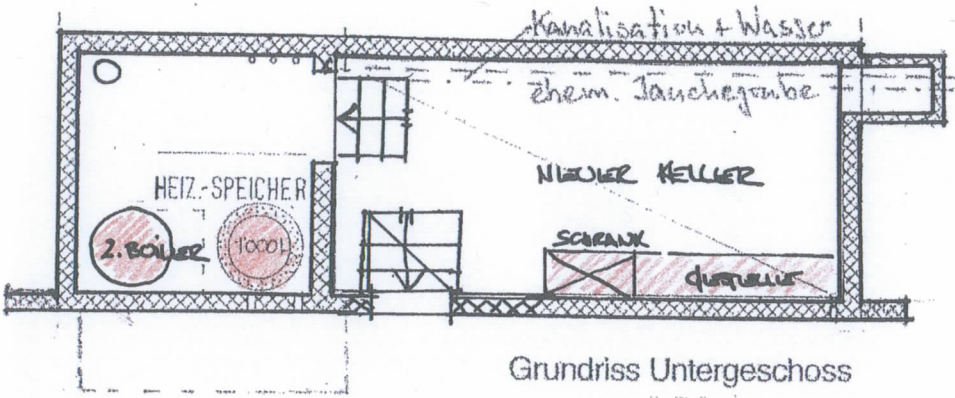 Kanalisation + Wasser
ehem. Jauchegrube
NEUER KELLER
HEIZ.-SPEICHER
2. BOILER
1000 l
SCHRANK
GESTELLE
Grundriss Untergeschoss